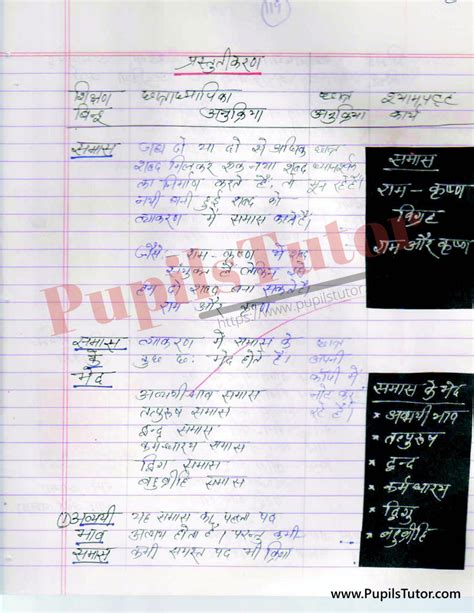 119
प्रस्तुतीकरण
शिक्षण छात्राध्यापिका छात्र श्यामपट्ट
बिन्दु अनुक्रिया अनुक्रिया कार्य
समास जब दो या दो से अधिक छात्र
शब्द मिलकर एक नया शब्द ध्यानपूर्वक
का निर्माण करते हैं। तो सुन रहे हैं।
नयी बनी हुई शब्द को
व्याकरण में समास कहते हैं।
जैसे राम - कृष्ण में शब्द
संयुक्त है लेकिन
हम दो शब्द बना सकते हैं।
राम और कृष्ण
समास
राम - कृष्ण
विग्रह
राम और कृष्ण
PupilsTutor
https://www.pupilstutor
समास व्याकरण में समास के छात्र
के कुछ छः भेद होते हैं। अपनी
भेद कॉपी में
अव्ययीभाव समास नोट कर
तत्पुरुष समास रहे हैं।
द्वन्द्व समास
कर्मधारय समास
द्विगु समास
बहुब्रीहि समास
समास के भेद
* अव्ययी भाव
* तत्पुरुष
* द्वन्द
* कर्मधारय
* द्विगु
* बहुब्रीहि
① अव्ययी यह समास का पहला पद
भाव अव्यय होता है। परन्तु कभी
समास कभी समस्त पद भी क्रिया
www.PupilsTutor.com